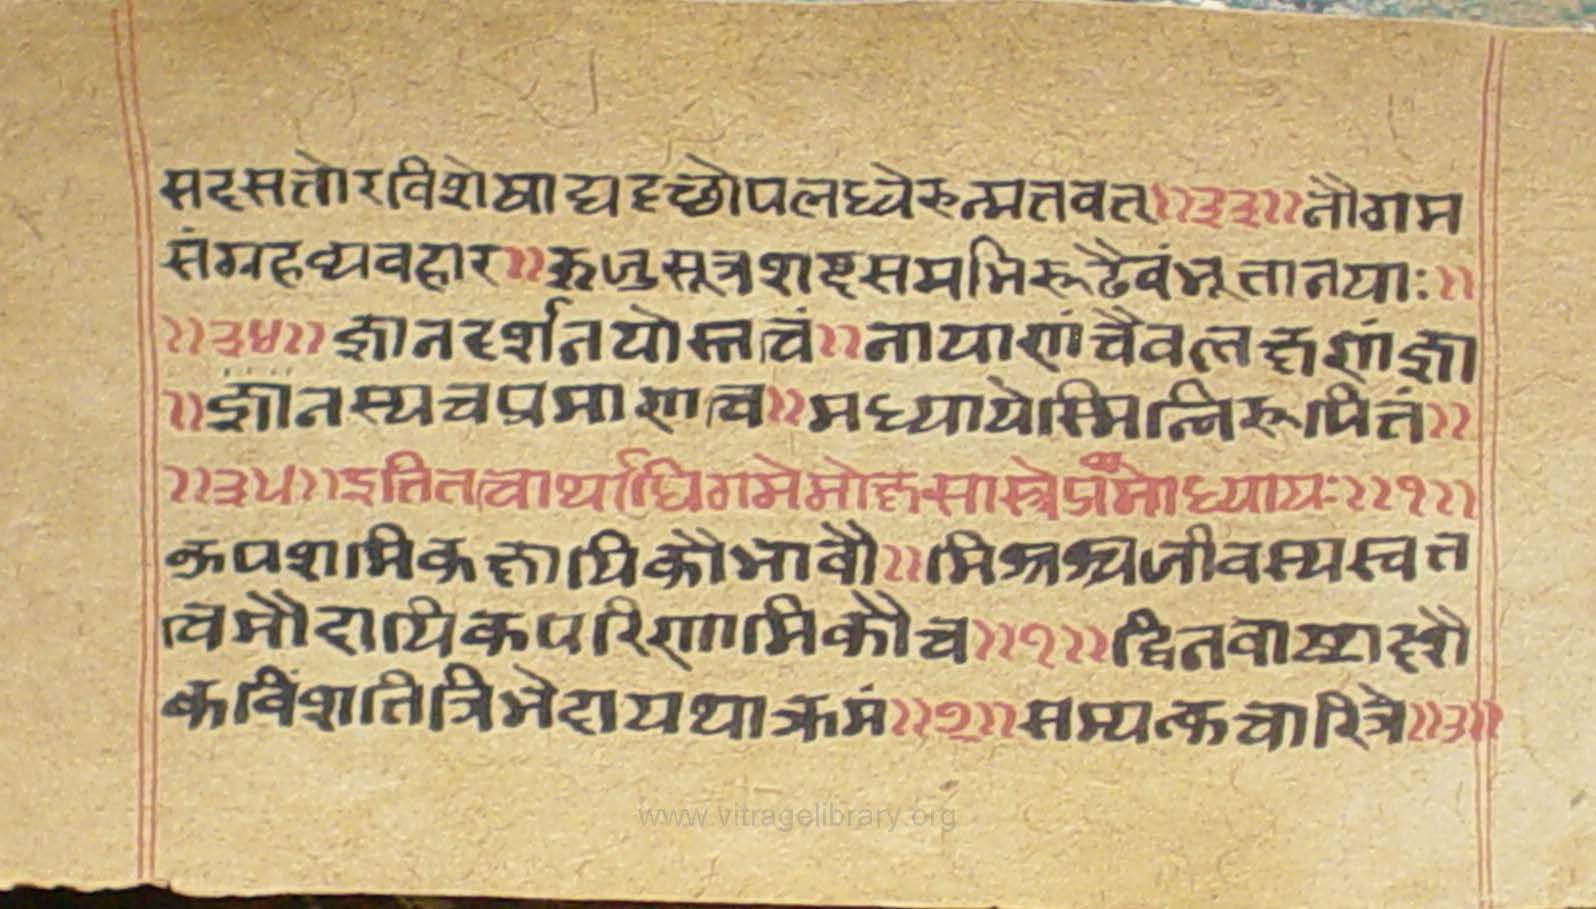 सदसत्तोरविशेषाद्यदृच्छोपलब्धेरुन्मत्तवत्॥३३॥नौगम
संग्रहव्यवहार॥ऋजुसूत्रशब्दसमभिरूढैवंभूतानयाः॥
॥३४॥ज्ञानदर्शनयोस्तत्वं॥नायाणांचैवलक्षणंज्ञा
॥ज्ञानस्यचप्रमाणत्व॥मध्यायोस्मिन्निरूपितं॥
॥३५॥इतितत्वार्थाधिगमेमोक्षसास्त्रेप्रथमोध्यायः॥१॥
ऊपशमिकक्षायिकौभावौ॥मिश्रश्चजीवस्यस्वत
त्वमौदायिकपरिणामिकौच॥१॥द्विनवाष्टादशै
कविंशतित्रिभेदायथाक्रमं॥२॥सम्यत्कचारित्रे॥३॥
www.vitragelibrary.org